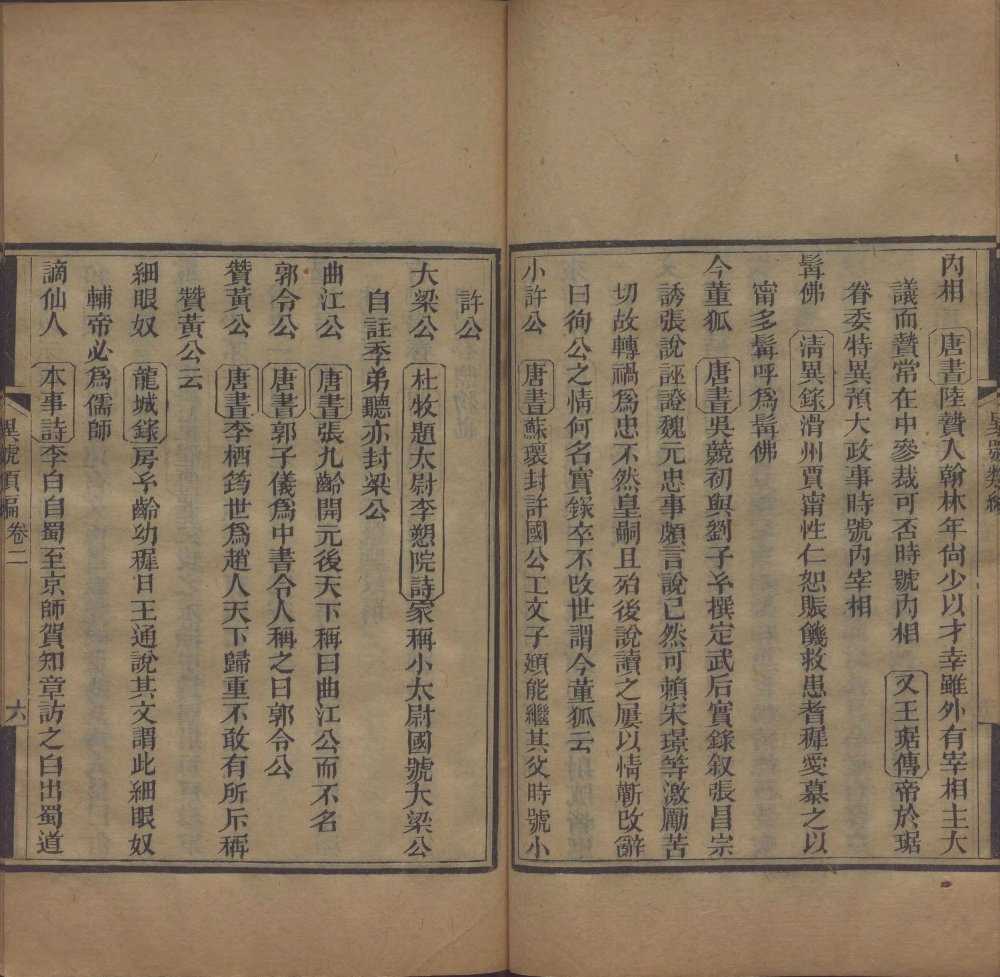 內相 唐書陸贄入翰林年尙少以才幸雖外有宰相主大
議而贄常在中參裁可否時號內相 又王琚傳帝於琚
眷委特異預大政事時號內宰相
髯佛 淸異錄滑州賈甯性仁恕賑饑救患耆穉愛慕之以
甯多髯呼爲髯佛
今董狐 唐書吳兢初與劉子予撰定武后實錄叙張昌宗
誘張說誣證魏元忠事頗言說已然可賴宋璟等激勵苦
切故轉禍爲忠不然皇嗣且殆後說讀之屢以情蘄改辭
曰徇公之情何名實錄卒不改世謂今董狐云
小許公 唐書蘇瓌封許國公工文子頲能繼其父時號小
許公
大梁公 杜牧題太尉李愬院詩家稱小太尉國號大梁公
自註季弟聽亦封梁公
曲江公 唐書張九齡開元後天下稱曰曲江公而不名
郭令公 唐書郭子儀爲中書令人稱之曰郭令公
贊黃公 唐書李栖筠世爲趙人天下歸重不敢有所斥稱
贊黃公云
細眼奴 龍城錄房予齡幼穉日王通說其文謂此細眼奴
輔帝必爲儒師
謫仙人 本事詩李白自蜀至京師賀知章訪之白出蜀道
異號類編 卷二 六
異號類編